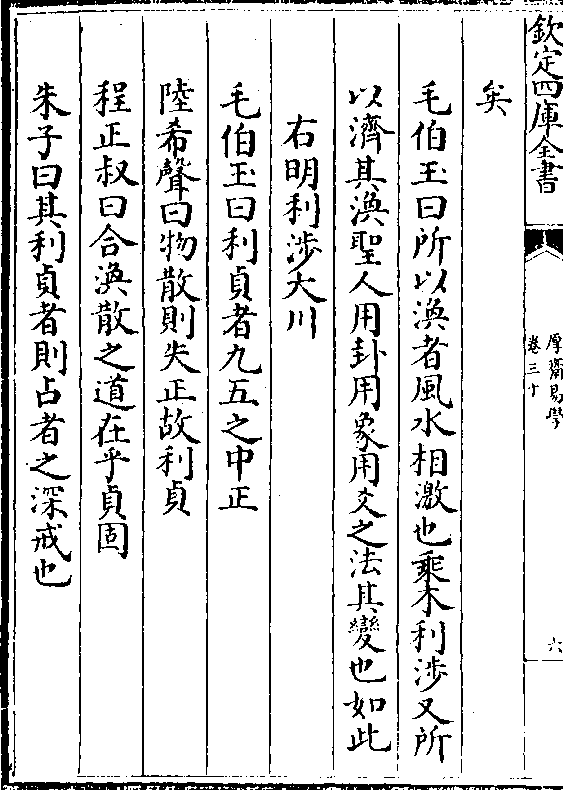 欽定四庫全書
厚齋易學
卷三十
六
矣
毛伯玉曰所以渙者風水相激也乘木利涉又所
以濟其渙聖人用卦用象用爻之法其變也如此
右明利涉大川
毛伯玉曰利貞者九五之中正
陸希聲曰物散則失正故利貞
程正叔曰合渙散之道在乎貞固
朱子曰其利貞者則占者之深戒也